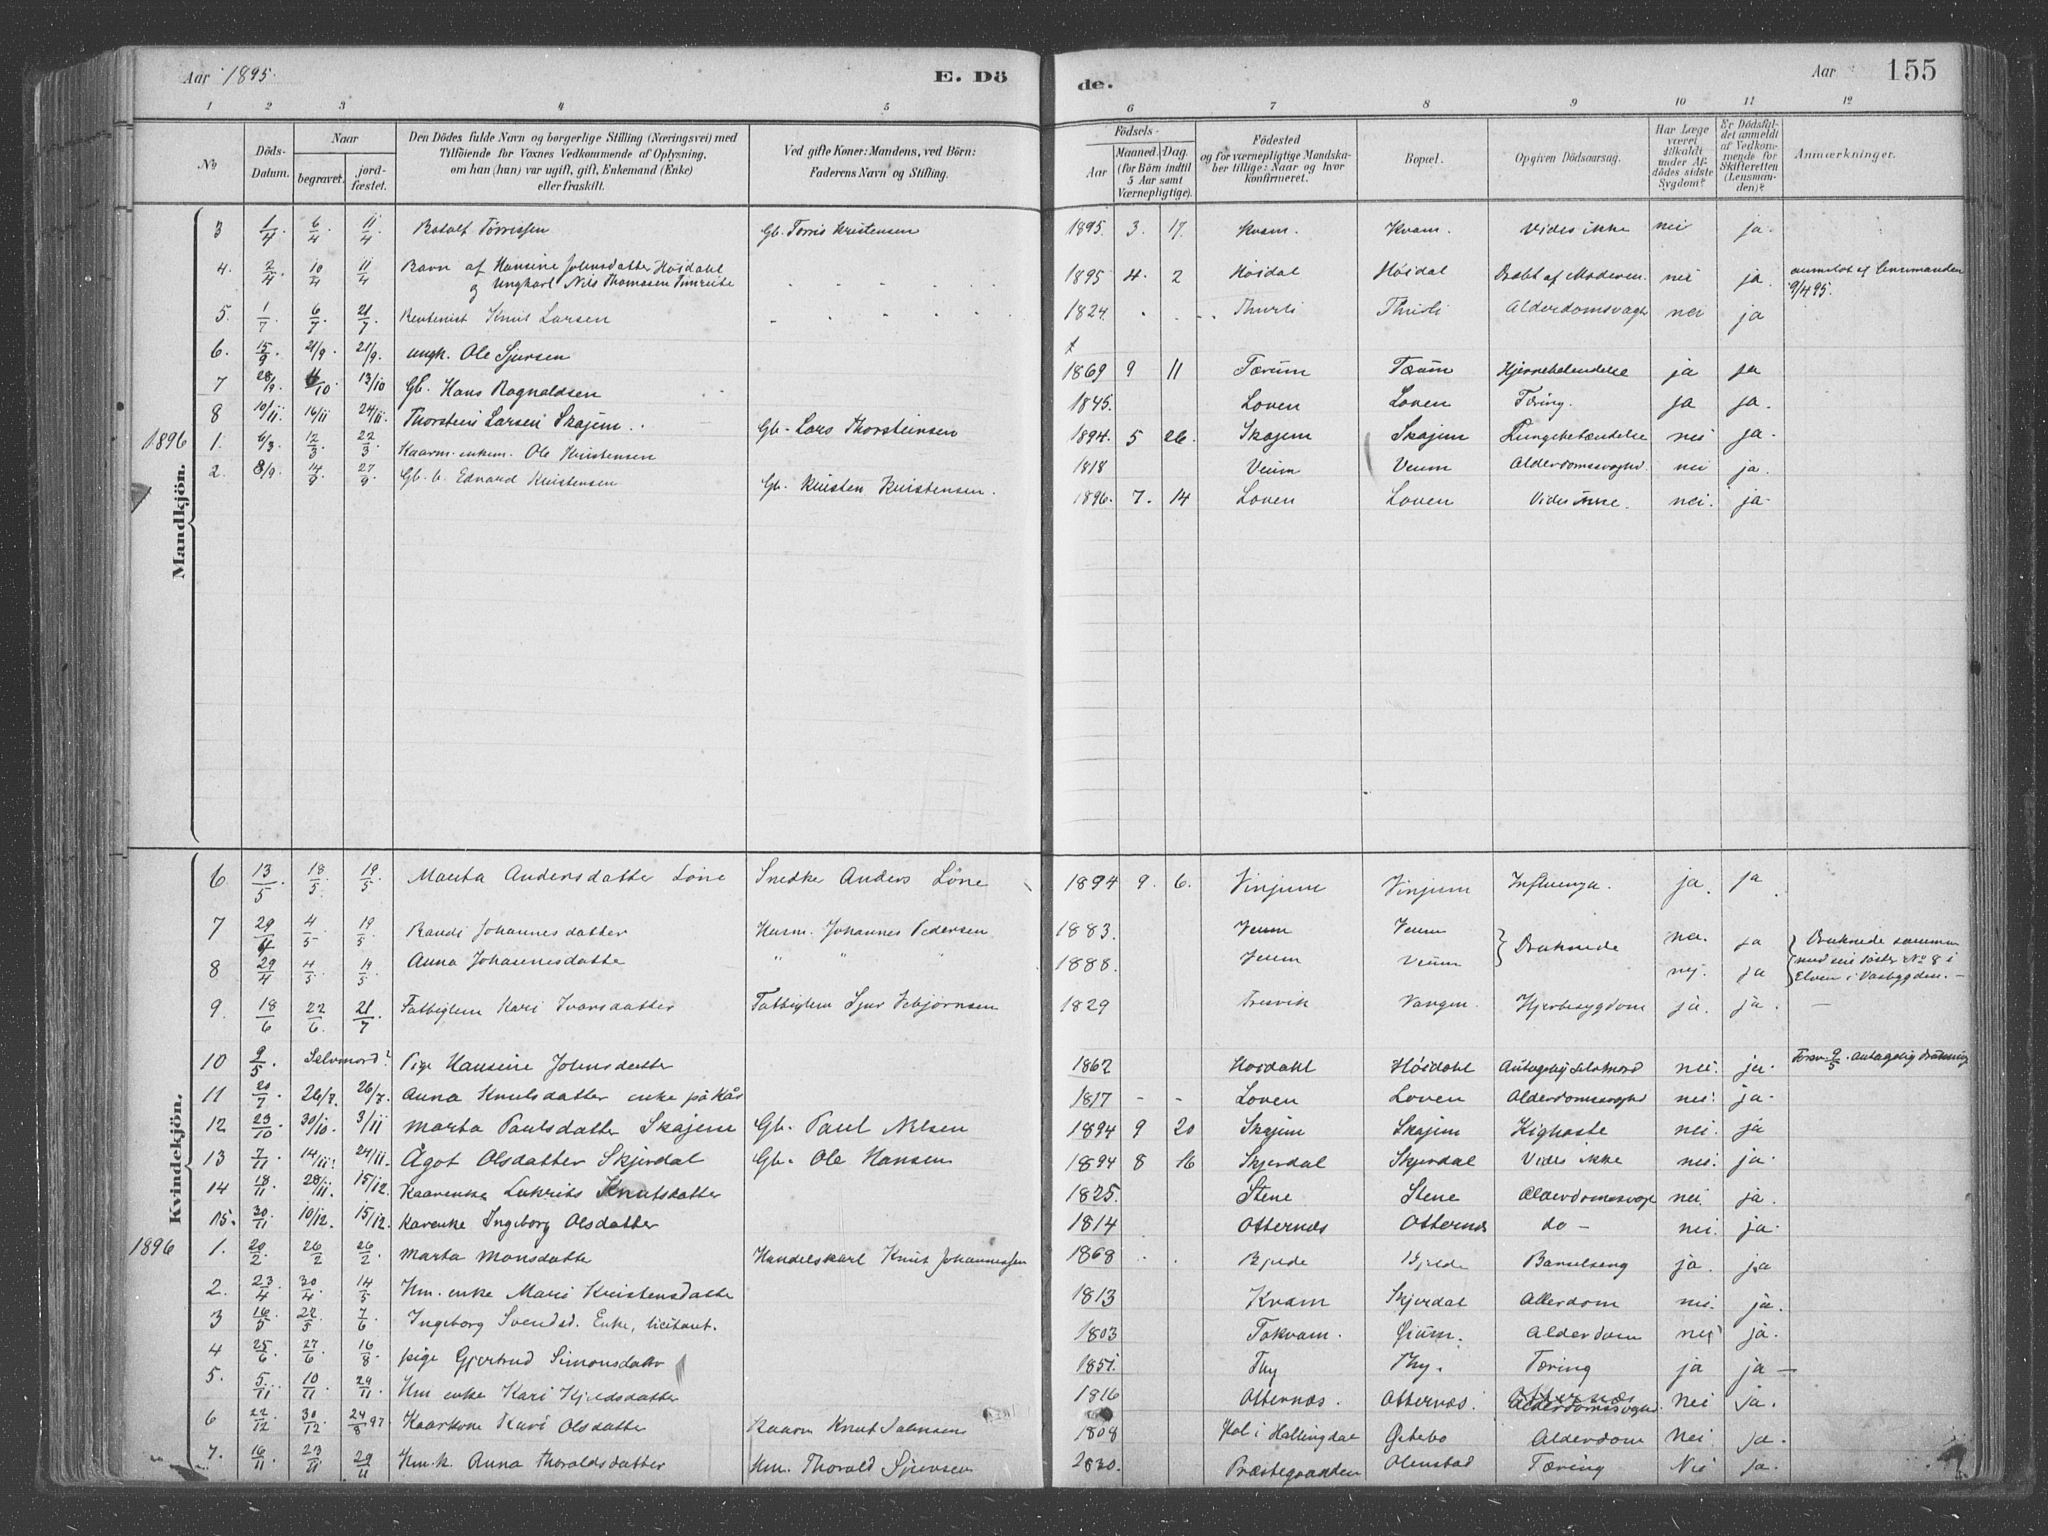 Aar 1895. E. Dö
de. Aar 155
1 2 3 4 5 6 7 8 9 10 11 12
No Döds-Datum. Naar begravet. jordfæstet. Den Dödes fulde Navn og borgerlige Stilling (Næringsvei) med Tilföiende for Voxnes Vedkommende af Oplysning, om han (hun) var ugift, gift, Enkemand (Enke) eller fraskilt. Ved gifte Koner: Mandens, ved Börn: Faderens Navn og Stilling. Födsels- Aar Maaned. Dag. (for Börn indtil 5 Aar samt Værnepligtige). Födested og for værnepligtige Mandskaber tillige: Naar og hvor konfirmeret. Bopæl. Opgiven Dödsaarsag. Har Læge været tilkaldt under Afdödes sidste Sygdom? Er Dödsfaldet anmeldt af Vedkommende for Skifteretten (Lensmanden)? Anmærkninger.
Mandkjön.
3 1/4. 6/4 11/4 Botolf Törrissen Gb. Torris Kristensen 1895. 3. 17. Kvam. Kvam. Vides ikke nei ja.
4. 2/4 10/4 11/4 Barn af Hansine Johnsdatter Höidahl og Ungkarl Nils Thomasen 1895 4. 2 Höidal Höidal Dræbt af Moderen. nei ja. anmeldt af lensmanden 9/4 95.
5. 1/7 6/7 21/7 Knut Larsen 1824. Alderdomsvagh nei ja
6. 15/9 21/9 21/9. ungk. Ole Sjursen 1869 9 11 Hjernebetendelse ja ja
7 28/9. 6/10. 13/10 Gb. Hans Ragnaldsen 1845. Loven Loven Tæring. ja ja.
8 10/11. 16/11 24/11. Thorstein Larsen Skajem Gb. Lars Thorsteinsen 1894. 5 26. Skajem Skajem Lungebetændelse nei ja.
1896 1. 6/3. 12/3 22/3 Kaarm. enkem. Ole Kristensen 1818 Veum Veum Alderdomssvaghd nei ja.
2. 8/9. 14/9 27/9 Gb. b. Edvard Kristensen Gb. Kristen Kristensen. 1896. 7. 14 Loven Loven Vides ikke. nei. ja.
Kvindekjön.
6 13/5. 18/5. 19/5. Marita Andersdatter Löne Snedke Anders Löne 1894 9. 6. Vinjum Vinjum Influenza. ja. ja
7 29/4 4/5 19/5 Randi Johannesdatter Husm. Johannes Pedersen 1883. Veum Veum Druknede nei. ja Druknede sammen med sin söster No 8 i Elven i
8 29/4 4/5 19/5 Anna Johannesdatte " " " 1888. Veum Veum nej. ja
9. 18/6 22/6. 21/7 Fattiglem Kari Ivarsdatter Fattiglem Sjur 1829 Fresvik Vangen Hjertesygdom ja. ja. —
10 9/5 Selvmord? Pige Hansine Johnsdatter 1862 Hoidahl Höidahl Antagelig Selvmord nei. ja. antagelig
11 20/7 26/7. 26/7. Anna Knutsdatter enke på Kår 1817 - - Loven Loven Alderdomssvaghd nei. ja.
12 23/10 30/10. 3/11 Marta Paulsdatter Skajem Gb. Paul Nilsen 1894 9 20 Skajem Skajem Kighoste nei. ja
13 7/11 14/11. 24/11. Ågot Olsdatter Skjerdal Gb. Ole Hansen 1894 8 16 Skjerdal Skjerdal Vides ikke nei. ja.
14 18/11 28/11. 15/12. Kaarenke Knutsdatter 1825. Stene Stene Alderdomssvagh nei. ja.
15. 30/11 10/12. 15/12. Karenke Ingeborg Olsdatter 1814 Otternæs Otternæs do — nei. ja.
1896 1. 20/2. 26/2 26/2. Marta Monsdatte Handelskarl Knut Johannessen 1868 Barselseng ja. ja
2. 23/4 30/4. 14/5 Hm. enke Mari Kristensdatte 1813 Kvam Skjerdal Alderdom nei. ja.
3 16/5 22/5 7/6 Ingeborg Svendsd. Enke, 1803 Tokvam. Alderdom nei ja.
4 25/6 27/6 16/8. pige Gjertrud Simonsdatr 1851. Thy Thy. Tæring ja ja —
5. 5/11 10/11. 29/11. Hm. enke Kari Kjeldsdatter 1816 Otternæs. Otternæs. Alderdomssvaghd. nei ja.
6 22/12 30/12 24/8 97 Kaarkone Kari Olsdatter Kaarm Knut 1808 Hol i Hallingdal Alderdom nei ja.
7. 16/11. 23/11 29/11 Hm. k. Anna Thoraldsdatter Hm. Thorald Sjursen 1830. Præstegaarden Tæring Nei ja.